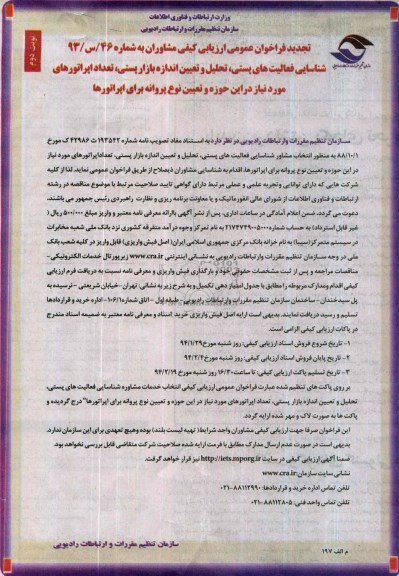 وزارت ارتباطات و فناوری اطلاعات
سازمان تنظیم مقررات و ارتباطات رادیویی
نوبت دوم
تجدید فراخوان عمومی ارزیابی کیفی مشاوران به شماره ۴۶/س/۹۳
شناسایی فعالیت های پستی، تحلیل و تعیین اندازه بازار پستی، تعداد اپراتورهای
مورد نیاز در این حوزه و تعیین نوع پروانه برای اپراتورها
سازمان تنظیم مقررات و ارتباطات رادیویی در نظر دارد به استناد مفاد تصویب نامه شماره ۱۹۳۵۴۲/ت ۴۲۹۸۶ ک مورخ
۸۸/۱۰/۱ به منظور انتخاب مشاور شناسایی فعالیت های پستی، تحلیل و تعیین اندازه بازار پستی، تعداد اپراتورهای مورد نیاز
در این حوزه و تعیین نوع پروانه برای اپراتورها، اقدام به شناسایی مشاوران ذیصلاح از طریق فراخوان عمومی نماید. لذا از کلیه
شرکت هایی که دارای توانایی و تجربه علمی و عملی مرتبط دارای گواهی تایید صلاحیت مرتبط با موضوع مناقصه در رشته
ارتباطات و فناوری اطلاعات از شورای عالی انفورماتیک و یا معاونت برنامه ریزی و نظارت راهبردی رئیس جمهور می باشند،
دعوت می گردد، ضمن اعلام آمادگی در ساعات اداری، پس از نشر آگهی با ارائه معرفی نامه معتبر و واریز مبلغ ۵۰۰/۰۰۰ ریال (
غیر قابل استرداد) به حساب شماره ۲۱۷۴۳۲۹۰۰۵۰۰۰ به نام تمرکز وجوه درآمد متفرقه کشوری نزد بانک ملی شعبه مخابرات
در سیستم متمرکز (سیبا) به نام خزانه بانک مرکزی جمهوری اسلامی ایران( اصل فیش واریزی) قابل واریز در کلیه شعب بانک
ملی در وجه سازمان تنظیم مقررات و ارتباطات رادیویی به نشانی اینترنتی www.cra.ir زیر پورتال خدمات الکترونیکی-
مناقصات مراجعه و پس از ثبت مشخصات حقوقی خود و بارگذاری فیش واریزی و معرفی نامه نسبت به دریافت فرم ارزیابی
کیفی اقدام و مدارک مربوطه را مطابق با جدول امتیاز دهی تکمیل و به شرح زیر به نشانی: تهران -خیابان شریعتی -نرسیده به
پل سیدخندان-ساختمان سازمان تنظیم مقررات و ارتباطات رادیویی- طبقه اول - اتاق شماره ۱۰۶/۱- اداره خرید و قراردادها
تسلیم و رسید دریافت نمایند. بدیهی است ارایه اصل فیش واریزی خرید اسناد و معرفی نامه معتبر به ضمیمه اسناد مندرج
در پاکات ارزیابی کیفی الزامی است.
۱- تاریخ شروع فروش اسناد ارزیابی کیفی: روز شنبه مورخ ۹۴/۱/۲۹
۲- تاریخ پایان فروش اسناد ارزیابی کیفی: روز شنبه مورخ ۹۴/۲/۲
۳- تاریخ تسلیم پاکت ارزیابی کیفی: تا ساعت ۱۶/۳۰ روز شنبه مورخ ۹۴/۲/۱۹
بر روی پاکت های تنظیم شده عبارت فراخوان عمومی ارزیابی کیفی انتخاب خدمات مشاوره شناسایی فعالیت های پستی،
تحلیل و تعیین اندازه بازار پستی، تعداد اپراتورهای مورد نیاز در این حوزه و تعیین نوع پروانه برای اپراتورها" درج گردیده و
پاکت ها به صورت لاک و مهر شده ارایه گردد.
این فراخوان صرفا جهت ارزیابی کیفی مشاوران واجد شرایط( تهیه لیست بلند) بوده و هیچ تعهدی برای این سازمان ندارد.
بدیهی است در صورت عدم ارسال مدارک مطابق با فرمت ارایه شده صلاحیت شرکت متقاضی قابل بررسی نخواهد بود.
ضمنا آگهی ارزیابی کیفی در سایت http://iets.mporg.ir نیز قرار خواهد گرفت.
نشانی سایت سازمان: www.cra.ir
تلفن تماس اداره خرید و قراردادها: ۸۸۱۱۲۹۹۰-۰۲۱
تلفن تماس واحد فنی: ۸۸۱۱۲۸۰۵-۰۲۱
سازمان تنظیم مقررات و ارتباطات رادیویی
م الف ۱۹۷